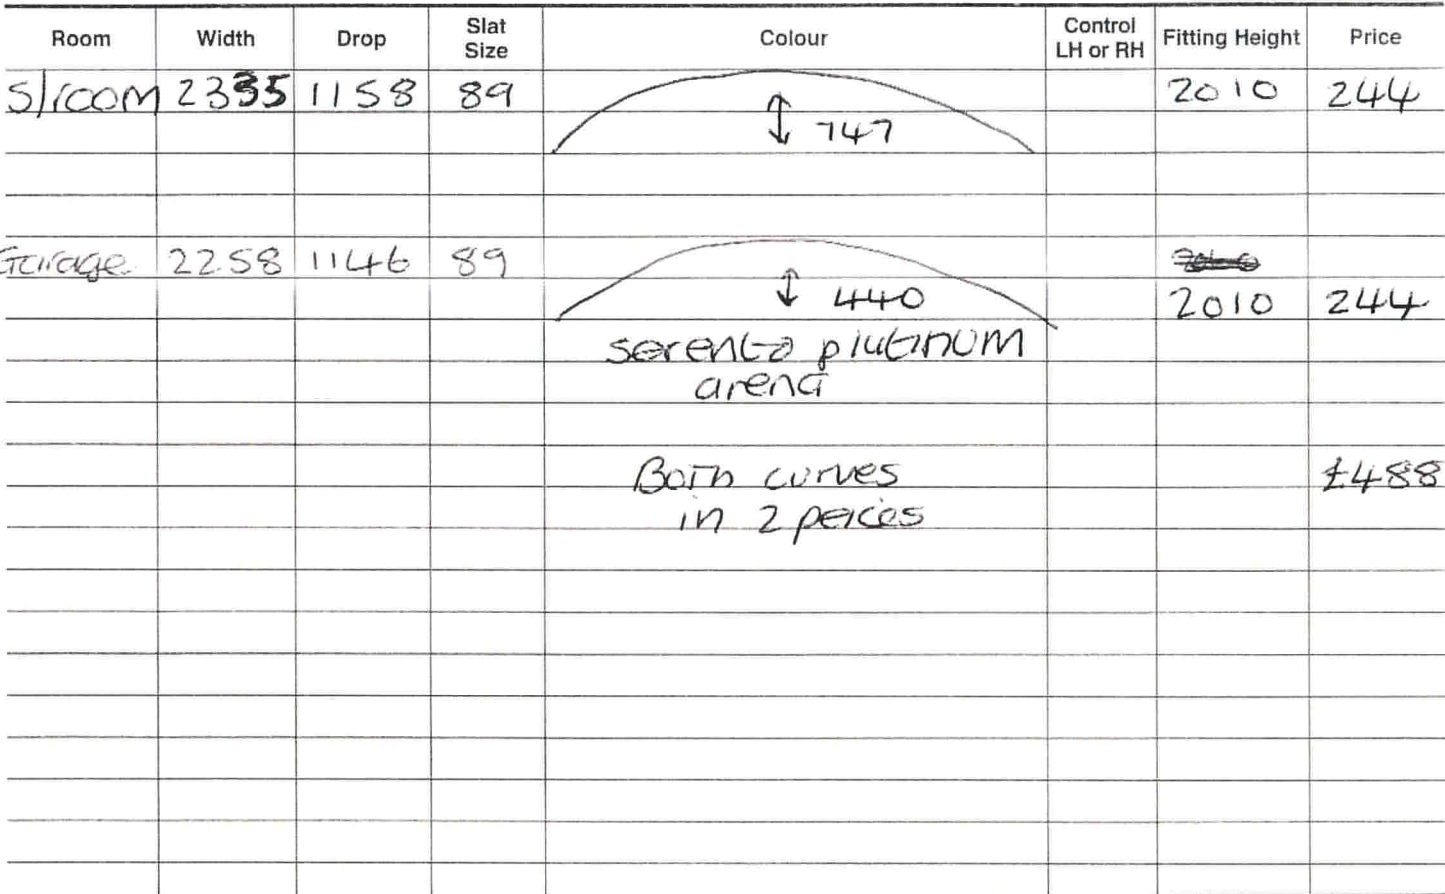 Room Width Drop Slat Size Colour Control LH or RH Fitting Height Price
S/room 2335 1158 89 2010 244
747
Garage 2258 1146 89
440 2010 244
serento platinum
arena
Both curves £488
in 2 peices